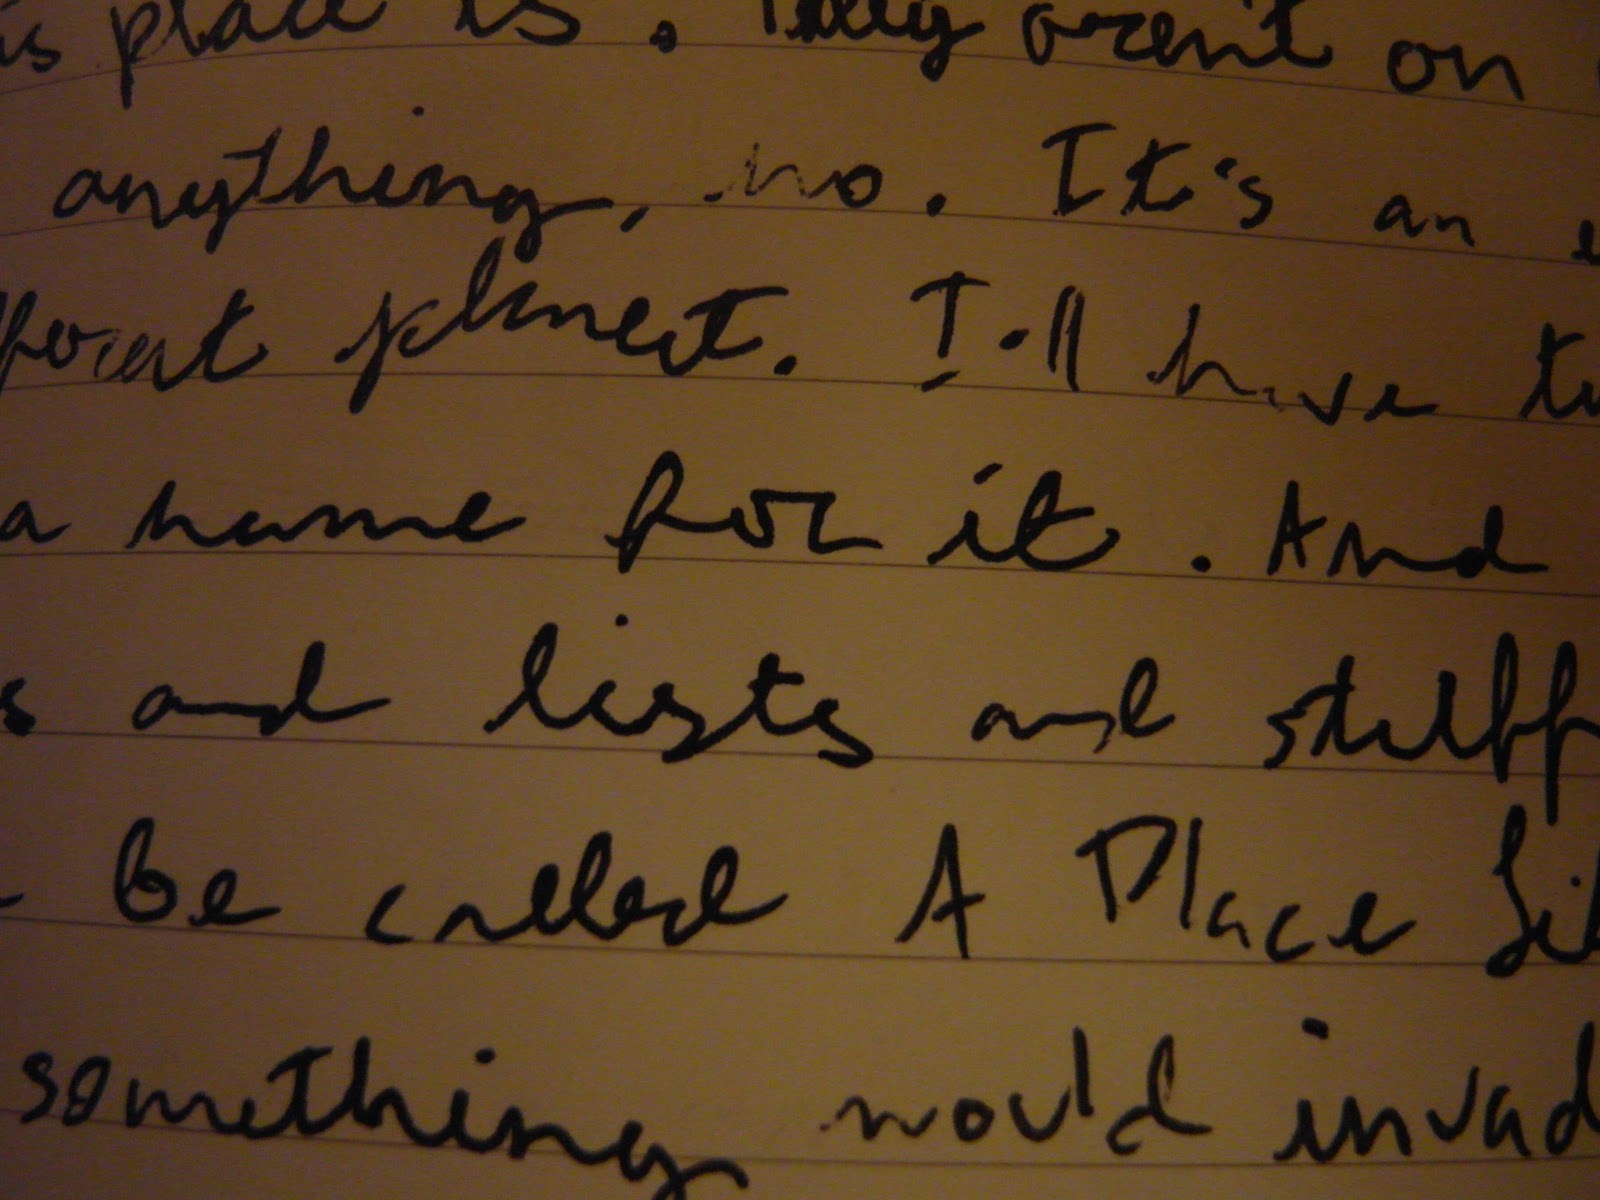 is place is. They aren't on
anything, no. It's an
planet. I'll have to
a name for it. And
s and lists and stuff
be called A Place Li
something would invad